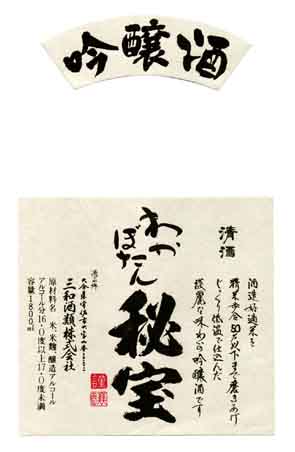 吟醸酒
清酒
酒造好適米を
精米歩合50%以下まで磨きあげ
じっくり低温で仕込んだ
綺麗な味わいの吟醸酒です
わかぼたん
秘宝
謹醸
三和酒類株式会社
原材料名 米、米麹、醸造アルコール
アルコール分16.0度以上17.0度未満
容量1800ml